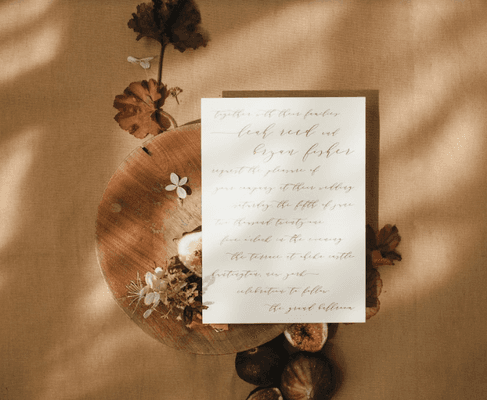 together with their families
leah reed and
bryan fisher
request the pleasure of
your company at their wedding
saturday the fifth of june
two thousand twenty-one
five o'clock in the evening
the terrace at oheka castle
huntington new york
celebration to follow
the grand ballroom